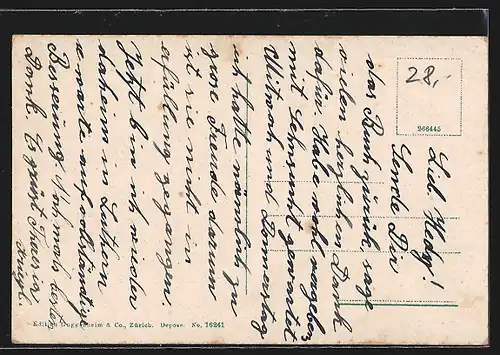 Lieb. Hedy!
Sende Dir
das Buch zurück, sage
vielen herzlichen Dank
dafür. Habe wohl vergebens
mit Sehnsucht gewartet
Mitwoch und Donnerstag
ich hatte nämlich zu
grose Freude daran
ist sie nicht in
erfüllung gegangen.
Jetzt bin ich wieder
daheim in Luthern
erwarte auf vollständige
Besserung. Nochmals besten
Dank. Es grüsst Theresia
28,-
266445
Edition Guggenheim & Co., Zürich. Depose. No. 16241